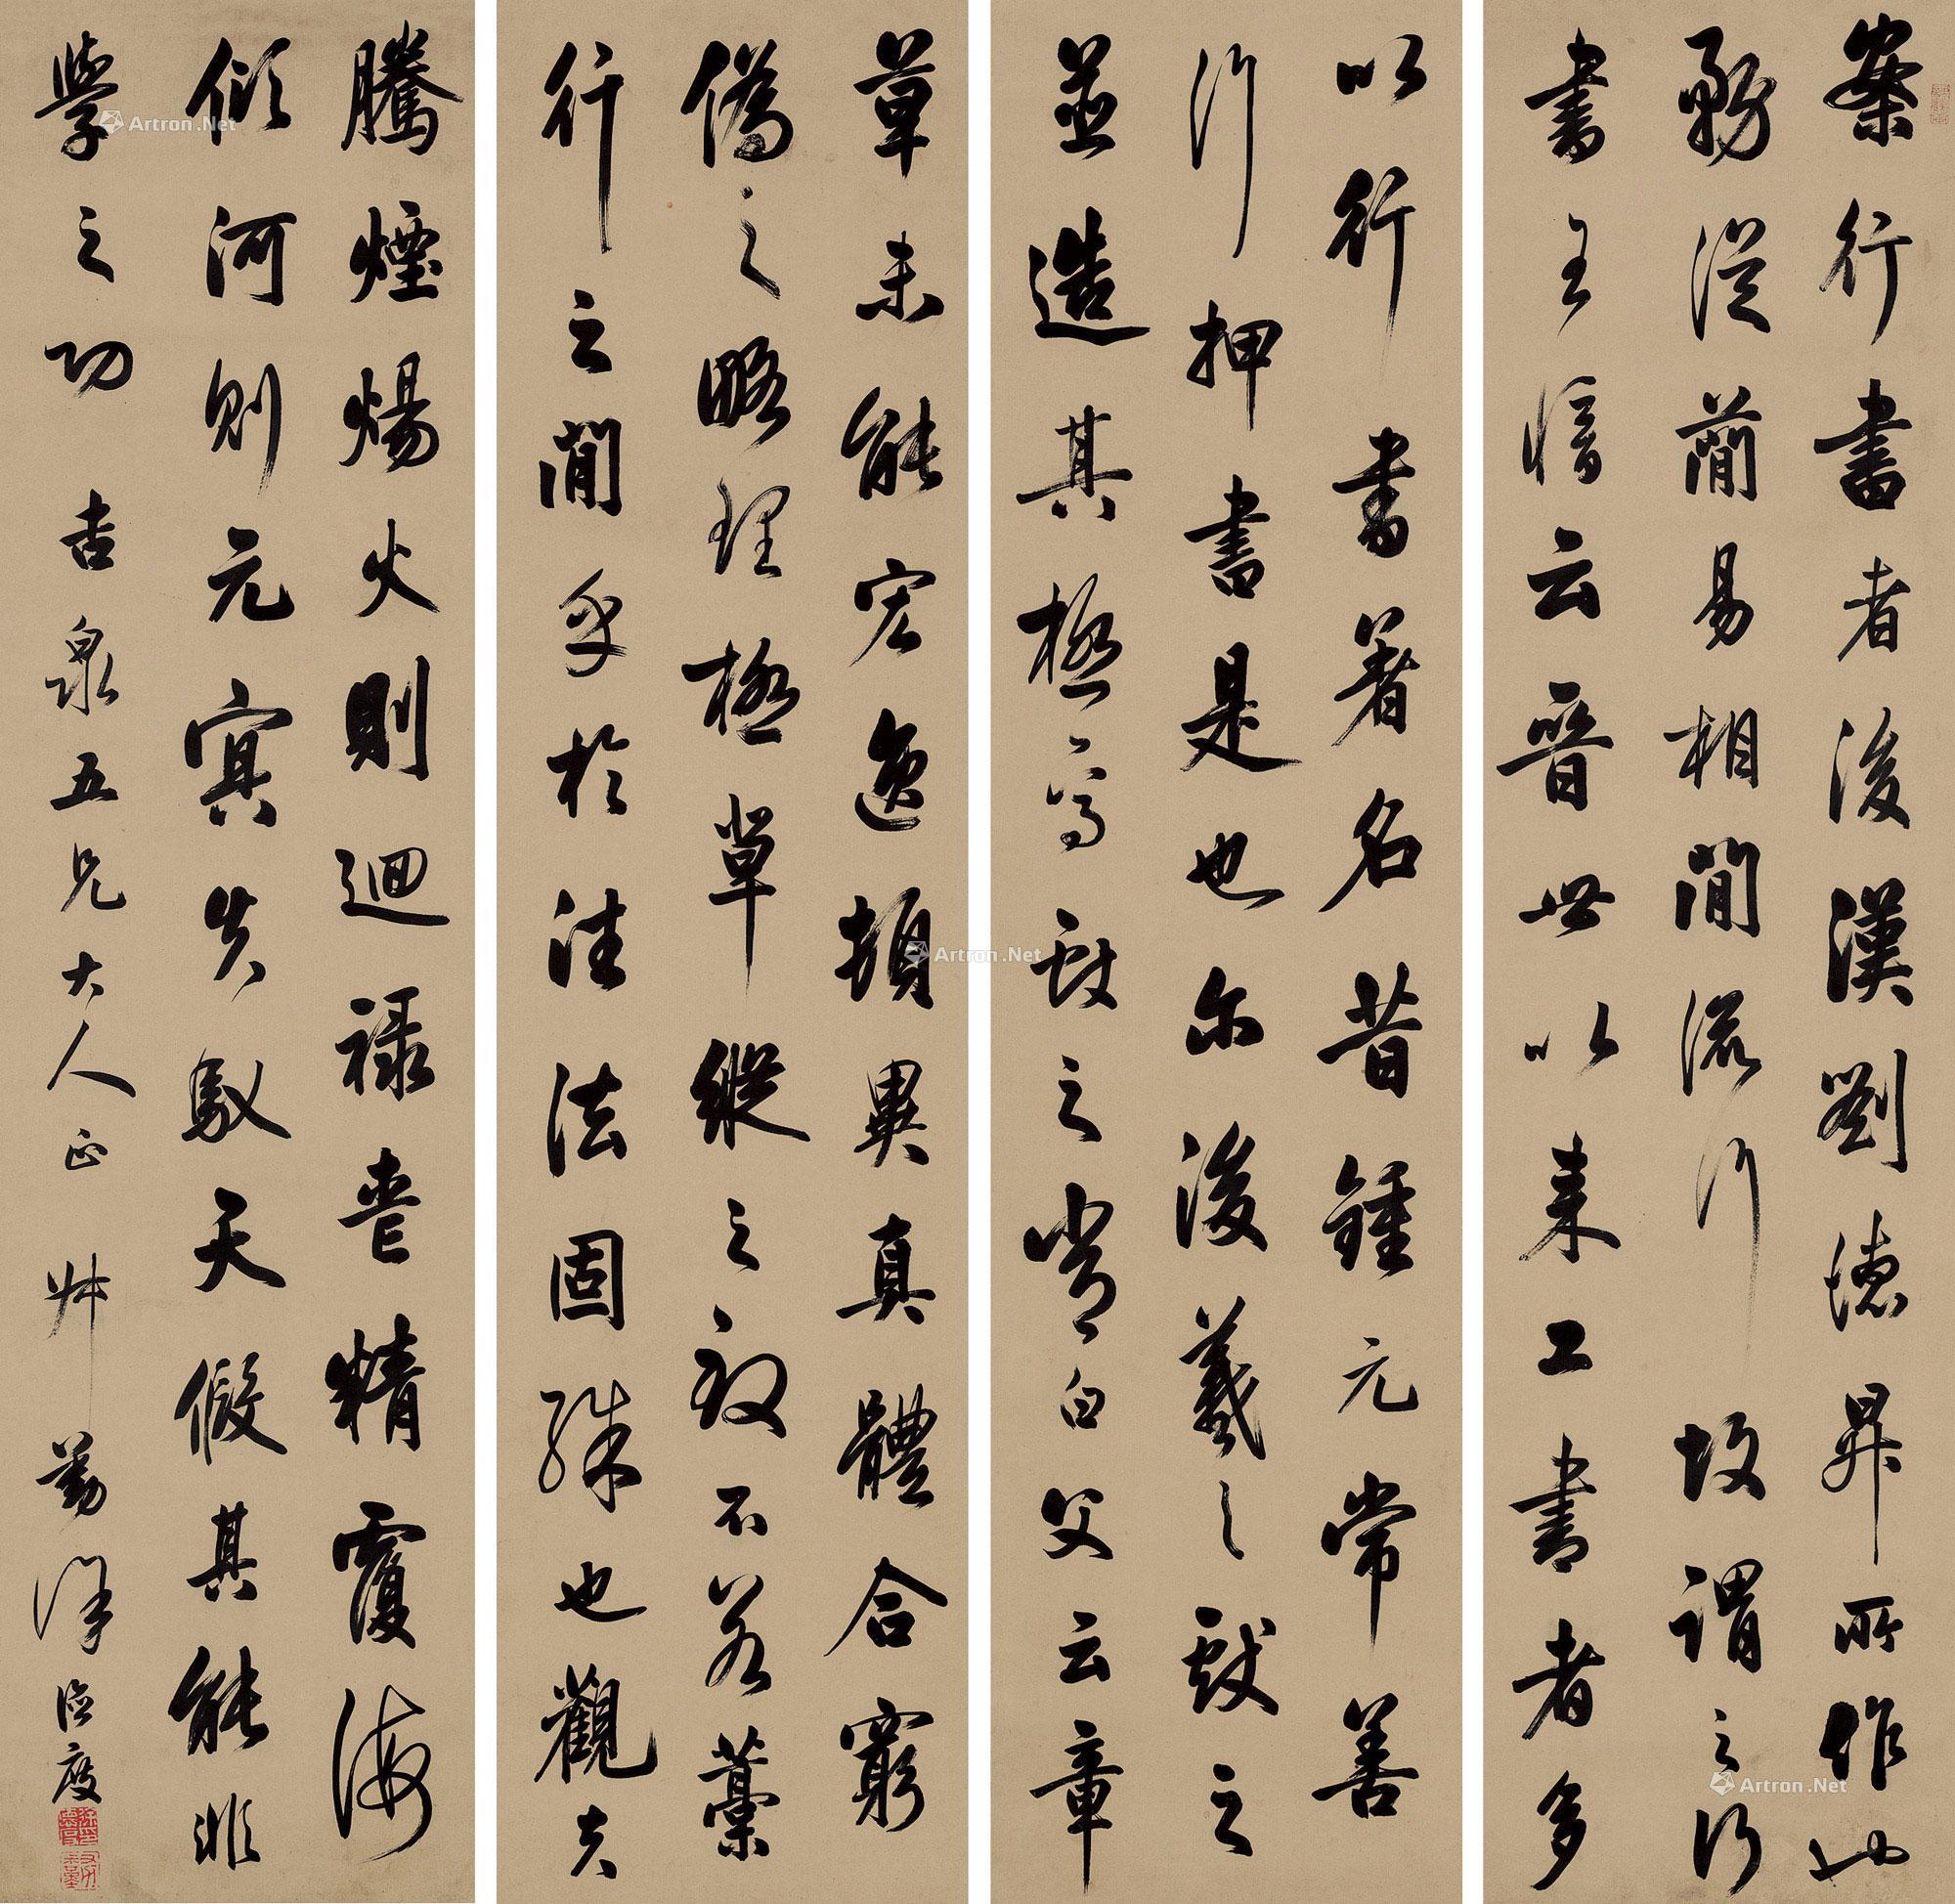 案行書者後漢劉德昇所作也
務從簡易相間流行故謂之行
書王愔云晉世以來工書者多
以行書著名昔鍾元常善
行押書是也尔後羲之獻之
並造其極焉獻之嘗白父云章
草未能宏逸頓異真體合窮
偽之略理極草縱之致不若藁
行之間乎於往法固殊也觀夫
騰煙煬火則迴祿喪精覆海
傾河則元冥失馭天假其能非
學之功 吉泉五兄大人正 艸
Artron.Net
Artron.Net
Artron.Net